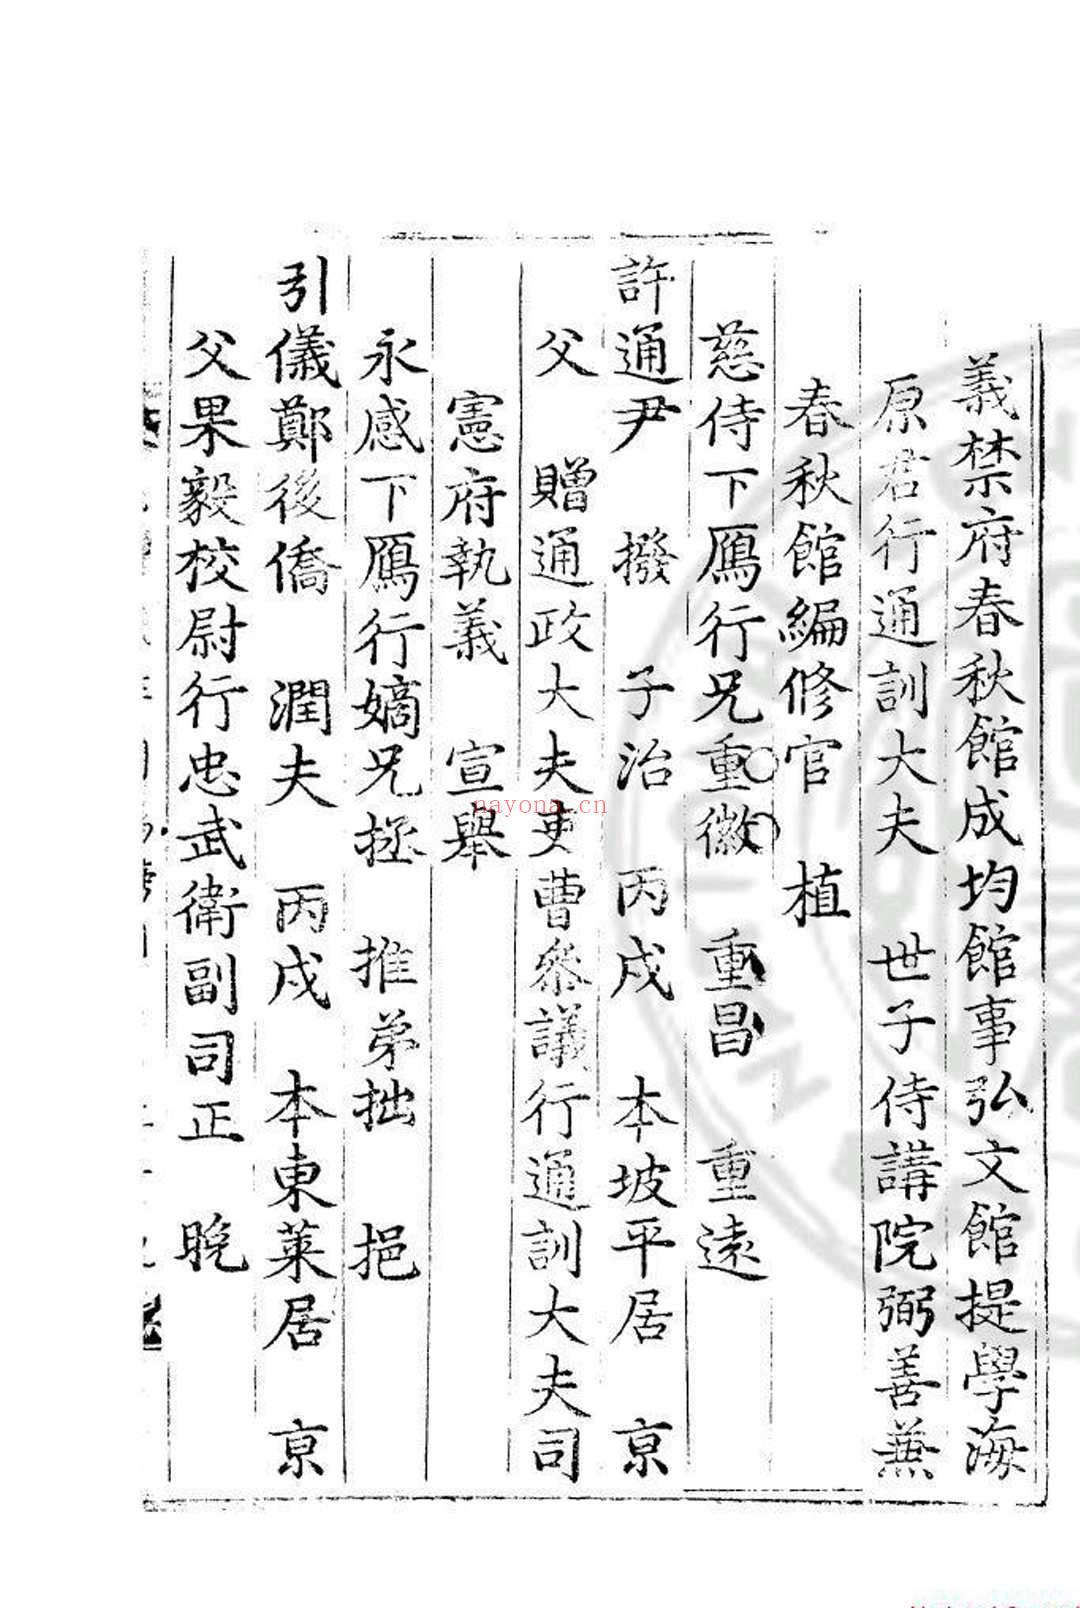 義禁府春秋館成均館事弘文館提學海
原君行通訓大夫 世子侍講院弼善兼
春秋館編修官 植
慈侍下鴈行兄重徽 重昌 重遠
許通尹 撥 子治 丙戌 本坡平居 京
父 贈通政大夫吏曹參議行通訓大夫司
憲府執義 宣舉
永感下鴈行嫡兄拯 推弟拙 挹
引儀鄭後僑 潤夫 丙戌 本東萊居 京
父果毅校尉行忠武衛副司正 晩
nayona.cn